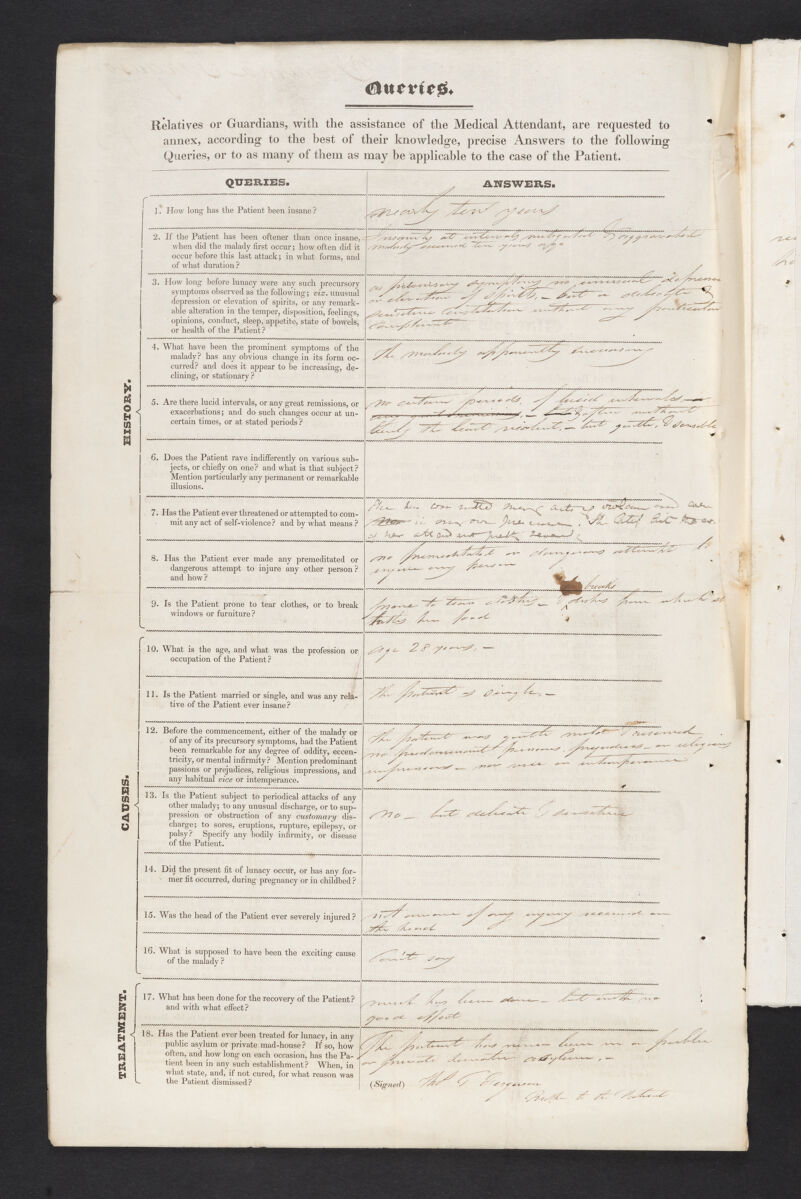 Queries.
Relatives or Guardians, with the assistance of the Medical Attendant, are requested to
annex, according to the best of their knowledge, precise Answers to the following
Queries, or to as many of them as may be applicable to the case of the Patient.
QUERIES.
ANSWERS.
HISTORY.
1. How long has the Patient been insane?
nearly ten years
2. If the Patient has been oftener than once insane,
when did the malady first occur; how often did it
occur before this last attack; in what forms, and
of what duration?
Insanity at intervals, aggravated
malady ten years ago
3. How long before lunacy were any such precursory
symptoms observed as the following; viz. unusual
depression or elevation of spirits, or any remark-
able alteration in the temper, disposition, feelings,
opinions, conduct, sleep, appetite, state of bowels,
or health of the Patient?
no precursory symptoms no unusual depression
or elevation of spirits, – but a delicate &
sensitive constitution without any particular
complaint
4. What have been the prominent symptoms of the
malady? has any obvious change in its form oc-
curred? and does it appear to be increasing, de-
clining, or stationary?
The malady apparently increasing
5. Are there lucid intervals, or any great remissions, or
exacerbations; and do such changes occur at un-
certain times, or at stated periods?
no certain periods, of lucid intervals –
often without
being the least violent. – but gentle, & sensible
6. Does the Patient rave indifferently on various sub-
jects, or chiefly on one? and what is that subject?
Mention particularly any permanent or remarkable
illusions.
7. Has the Patient ever threatened or attempted to com-
mit any act of self-violence? and by what means?
She has committed many acts of violence and
pretty severe
8. Has the Patient ever made any premeditated or
dangerous attempt to injure any other person?
and how?
no premeditated or dangerous attempt to
injure any person
9. Is the Patient prone to tear clothes, or to break
windows or furniture?
breaks
prone to tear clothes – & dishes from which
her food
CAUSES.
10. What is the age, and what was the profession or
occupation of the Patient?
age 28 years. –
11. Is the Patient married or single, and was any rela-
tive of the Patient ever insane?
The patient is single. –
12. Before the commencement, either of the malady or
of any of its precursory symptoms, had the Patient
been remarkable for any degree of oddity, eccen-
tricity, or mental infirmity? Mention predominant
passions or prejudices, religious impressions, and
any habitual vice or intemperance.
The patient was gentle & reserved
no predominant passions, prejudices – or religious
impressions – nor vice or intemperance
13. Is the Patient subject to periodical attacks of any
other malady; to any unusual discharge, or to sup-
pression or obstruction of any customary dis-
charge; to sores, eruptions, rupture, epilepsy, or
palsy? Specify any bodily infirmity, or disease
of the Patient.
no – but delicate & sensitive
14. Did the present fit of lunacy occur, or has any for-
mer fit occurred, during pregnancy or in childbed?
15. Was the head of the Patient ever severely injured?
not aware of any injury received on
the head
16. What is supposed to have been the exciting cause
of the malady?
Can't say
TREATMENT.
17. What has been done for the recovery of the Patient?
and with what effect?
much has been done – but with no
good effect
18. Has the Patient ever been treated for lunacy, in any
public asylum or private mad-house? If so, how
often, and how long on each occasion, has the Pa-
tient been in any such establishment? When, in
what state, and, if not cured, for what reason was
the Patient dismissed?
The patient has never been in a public
or private lunatic asylum. –
(Signed) Thos G Ferguson
Brother to the Patient